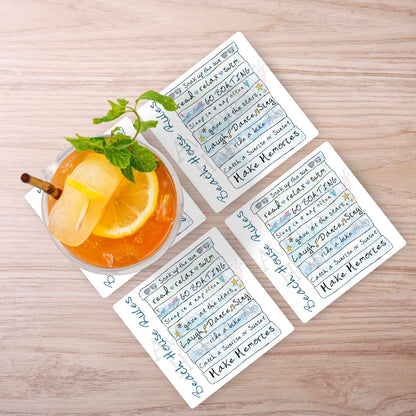 Beach House Rules
Soak up the sun
read relax swim
GO BOATING
Sleep in & nap often
gaze at the stars,
Laugh, Dance, Stay
ride a bike
Catch a Sunrise or Sunset
Make Memories
Beach House Rules
Soak up the sun
read relax swim
GO BOATING
Sleep in & nap often
gaze at the stars,
Laugh, Dance, Stay
ride a bike
Catch a Sunrise or Sunset
Make Memories
Beach House Rules
Soak up the sun
read relax swim
GO BOATING
Sleep in & nap often
gaze at the stars,
Laugh, Dance, Stay
ride a bike
Catch a Sunrise or Sunset
Make Memories